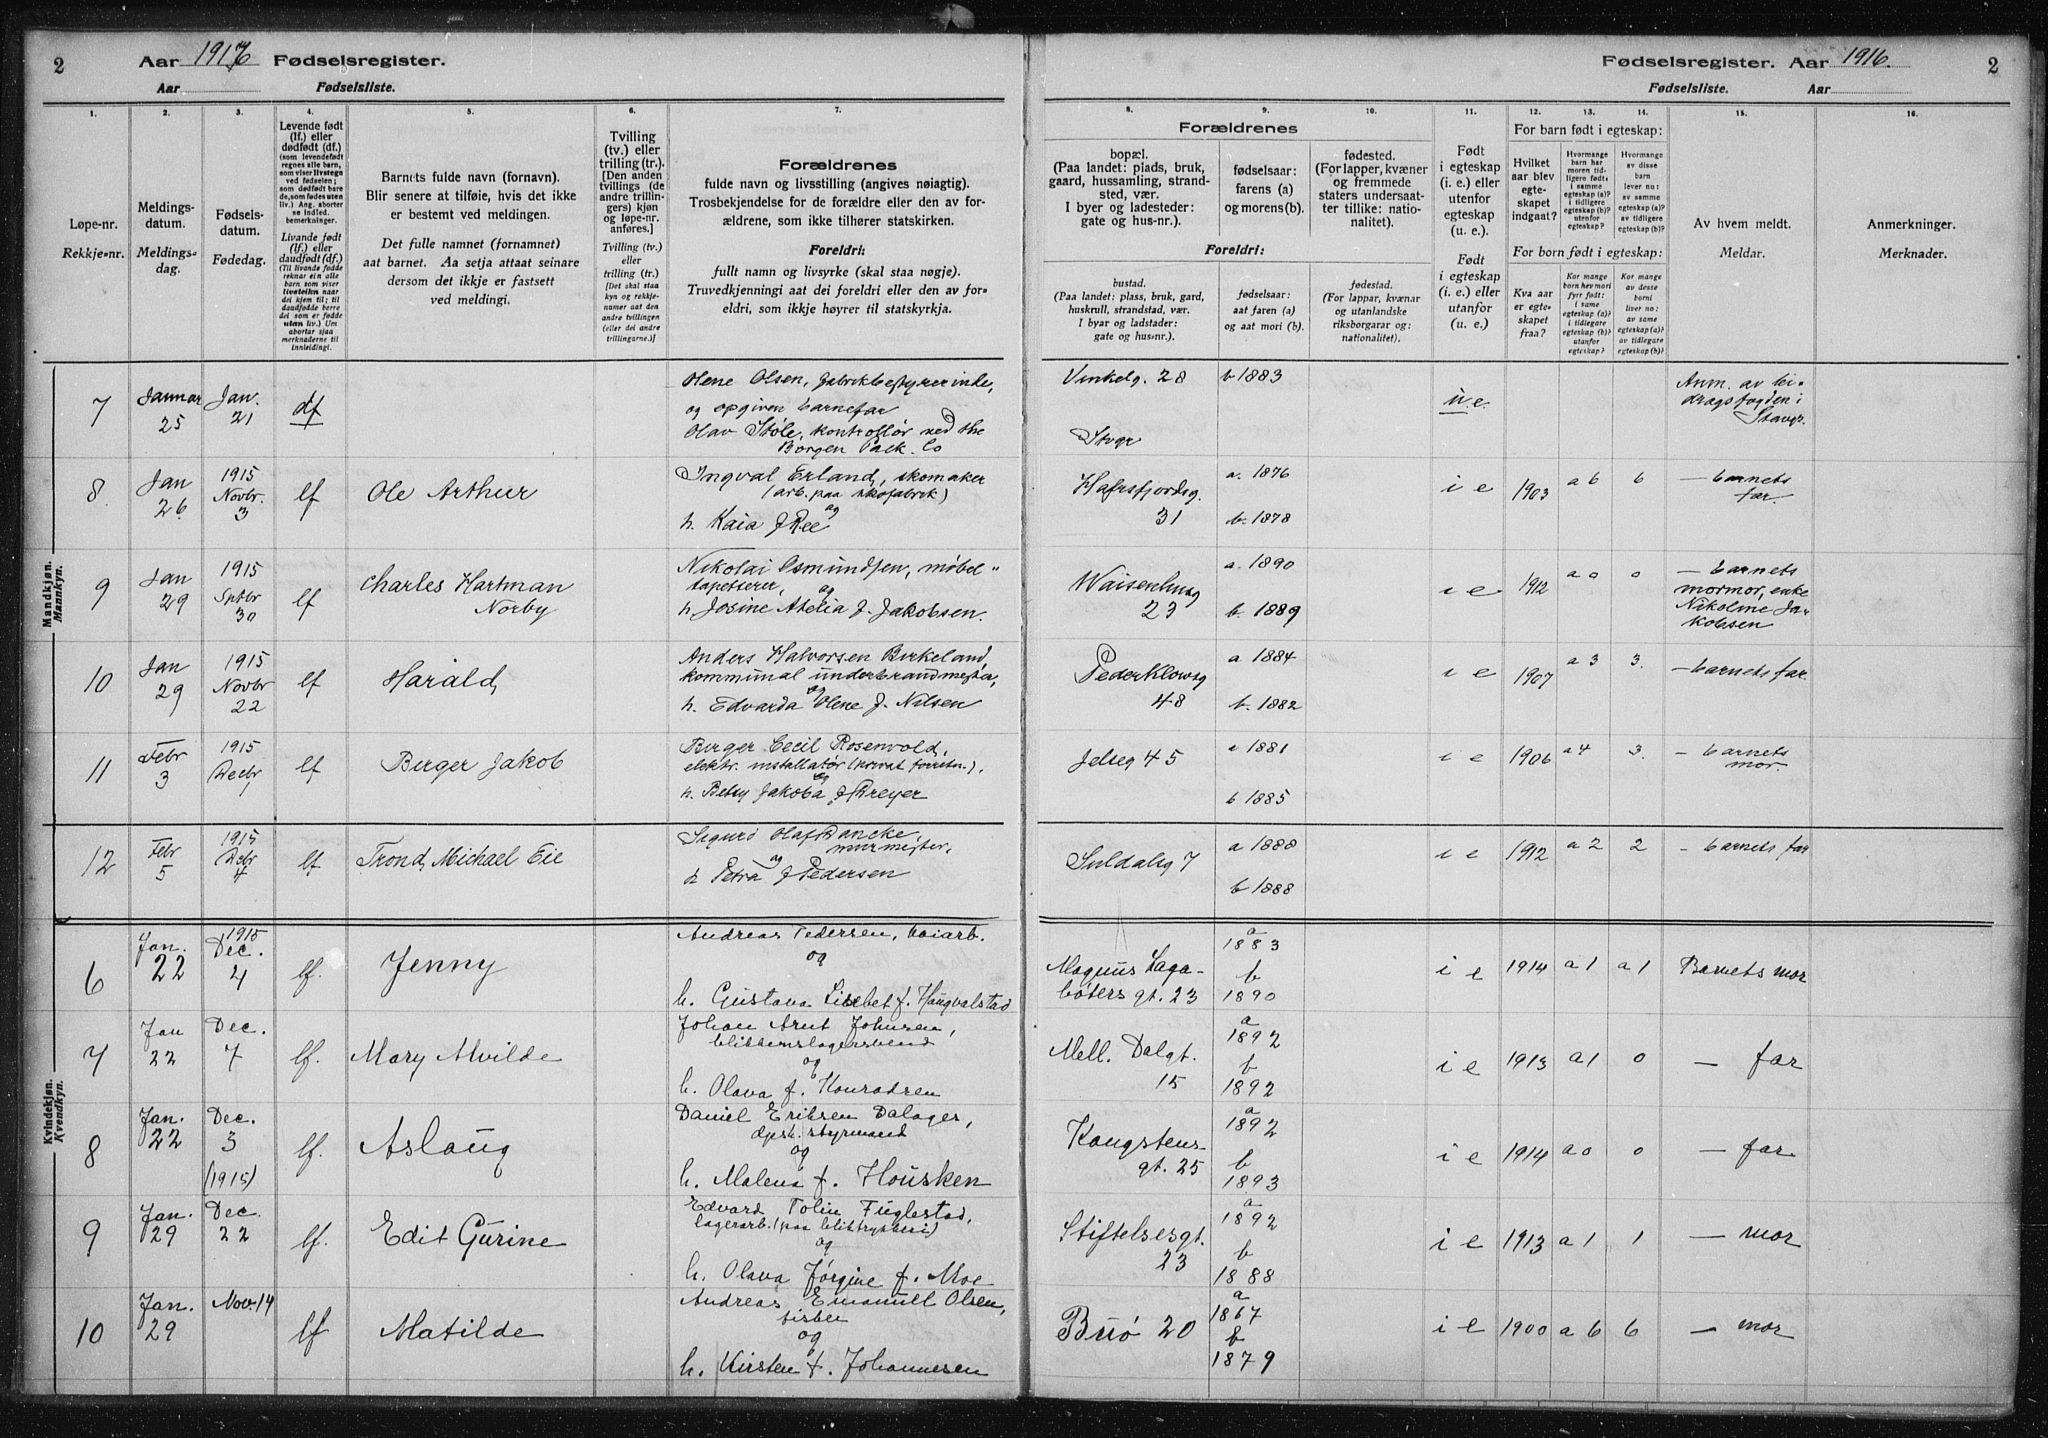 2
Aar 1916 Fødselsregister.
Aar Fødselsliste.
Fødselsregister. Aar 1916.
2
Fødselsliste. Aar
1. 2. 3. 4. 5. 6. 7.
8. 9. 10. 11. 12. 13. 14. 15. 16.
Løpe-nr.
Rekkje-nr.
Meldings-
datum.
Meldings-
dag.
Fødsels-
datum.
Fødedag.
Levende født
(lf.) eller
dødfødt (df.)
(som levendefødt
regnes alle barn,
som viser livstegn
ved fødselen;
som dødfødt bare
de, som fødes uten
liv.) Ang. aborter
se indled.
bemerkninger.
Livande født
(lf.) eller
daudfødt (df.)
(Til livande fødde
reknar ein alle
barn som viser
livsteikn naar
dei kjem til; til
daudfødde berre
dei som er fødde
utan liv.) Um
abortar sjaa
merknaderne til
innleidingi.
Barnets fulde navn (fornavn).
Blir senere at tilføie, hvis det ikke
er bestemt ved meldingen.
Det fulle namnet (fornamnet)
aat barnet. Aa setja attaat seinare
dersom det ikkje er fastsett
ved meldingi.
Tvilling
(tv.) eller
trilling (tr.)
[Den anden
tvillings (de
andre trillin-
gers) kjøn
og løpe-nr.
anføres.]
Tvilling (tv.)
eller
trilling (tr.)
[Det skal staa
kyn og rekkje-
numer aat den
andre tvillingen
(eller dei andre
trillingarne.)]
Forældrenes
fulde navn og livsstilling (angives nøiagtig).
Trosbekjendelse for de forældre eller den av for-
ældrene, som ikke tilhører statskirken.
Foreldri:
fullt namn og livsyrke (skal staa nøgje).
Truvedkjenningi aat dei foreldri eller den av for-
eldri, som ikkje høyrer til statskyrkja.
Forældrenes
bopæl.
(Paa landet: plads, bruk,
gaard, hussamling, strand-
sted, vær.
I byer og ladesteder:
gate og hus-nr.).
fødselsaar:
farens (a)
og morens (b).
fødested.
(For lapper, kvæner
og fremmede
staters undersaat-
ter tillike: natio-
nalitet).
Foreldri:
bustad.
(Paa landet: plass, bruk, gard,
huskrull, strandstad, vær.
I byar og ladstader:
gate og hus-nr.).
fødselsaar:
aat faren (a)
og aat mori (b).
fødestad.
(For lappar, kvænar
og utanlandske
riksborgarar og:
nationalitet).
Født
i egteskap
(i. e.) eller
utenfor
egteskap
(u. e.).
Født
i egteskap
(i. e.) eller
utanfor
(u. e.).
For barn født i egteskap:
Hvilket
aar blev
egte-
skapet
indgaat?
Hvormange
barn har
moren tid-
ligere født:
i samme
egteskap (a)?
i tidligere
egteskap (b)?
utenfor
egteskap?
Hvormange
av disse
barn
lever nu:
av samme
egteskap (a)?
av tidligere
egteskap (b)?
For born født i egteskap:
Kva aar
er egte-
skapet
fraa?
Kor mange
born hev mori
fyrr født:
i same
egteskap (a)?
i tidlegare
egteskap (b)?
utanfor
egteskap?
Kor mange
av desse
borni
liver no:
av same
egteskap (a)?
av tidlegare
egteskap (b)?
Av hvem meldt.
Meldar.
Anmerkninger.
Merknader.
Mandkjøn.
Mannkyn.
7 Januar 25 Jan. 21 df
Olene Olsen, fabrikbestyrerinde,
og opgiven barnefar
Olav Støle, kontrollør ved the
Borgen Pack. Co
Vinkelg. 28
Stvgr
b 1883 u. e.
Anm. av bi-
dragsfogden i
Stavgr.
8 Jan 26 1915 Novbr. 3 lf Ole Arthur
Ingval Erland, skomaker
(arb. paa skofabrik)
og
h. Kaia f Ree
Hafrsfjordsg.
31
a. 1876
b. 1878
i e 1903 a 6 6 — barnets
far.
9 Jan 29 1915 Sptbr 30 lf Charles Hartman
Norby
Nikolai Osmundsen, møbel-
tapetserer, og
h. Josine Atelia f. Jakobsen.
Waisenhusg
23
a. 1890
b. 1889
i e 1912 a 0 0 — barnets
mormor, enke
Nikoline Ja-
kobsen
10 Jan 29 1915 Novbr 22 lf Harald
Anders Halvorsen Birkeland,
kommunal underbrandmester,
og
h. Edvarda Olene f. Nilsen
Pederklowsg
48
a 1884
b. 1882
i e 1907 a 3 3. — barnets far.
11 Febr 3 1915 Decbr 1 lf Berger Jakob
Berger Cecil Rosenvold,
elektr. installatør (privat forretn.),
og
h. Betsy Jakoba f Dreyer
Jelseg 45
a 1881
b 1885
i e 1906 a 4 3. — barnets
mor.
12 Febr 5 1915 Dcbr 4 lf Trond Michael Eie
Sigurd Olaf Dancke,
murmester,
og
h Petra f Pedersen
Suldalsg 7
a 1880
b 1888
i e 1912 a 2 2 — barnets far
Kvindekjøn.
Kvendkyn.
6 Jan. 22 1915 Dec. 4 lf. Jenny
Andreas Pedersen, haiarb.
og
h. Gustava Lisebet f. Haugvalstad
Magnus Laga-
bøters gt. 23
a
1883
b
1890
i e 1914 a 1 a 1 Barnets mor
7 Jan 22 Dec. 7 lf. Mary Alvilde
Johan Arnt Johnsen,
blikkenslagersvend
og
h. Olava f. Konradsen
Mell. Dalgt.
15
a
1892
b
1892
i e 1913 a 1 0 — far
8 Jan. 22 Dec. 3 (1915) lf. Aslaug
Daniel Eriksen Dalager,
dpsk. styrmand
og
h. Malena f. Housken
Kongstens-
gt. 25
a
1892
b
1893
i e 1914 a 0 0 — far
9 Jan. 29 Dec. 22 lf. Edit Gurine
Edvard Tolin Fuglestad,
lagerarb. (paa bliktrykkeri)
og
h. Olava Jørgine f. Moe
Stiftelsesgt.
23
a
1892
b
1888
i e 1913 a 1 1 — mor
10 Jan. 29 Nov. 14 lf Matilde
Andreas Emanuel Olsen,
fisker
og
h. Kirsten f. Johannesen
Buø 20
a
1867
b
1879
i e 1900 a 6 6 — mor